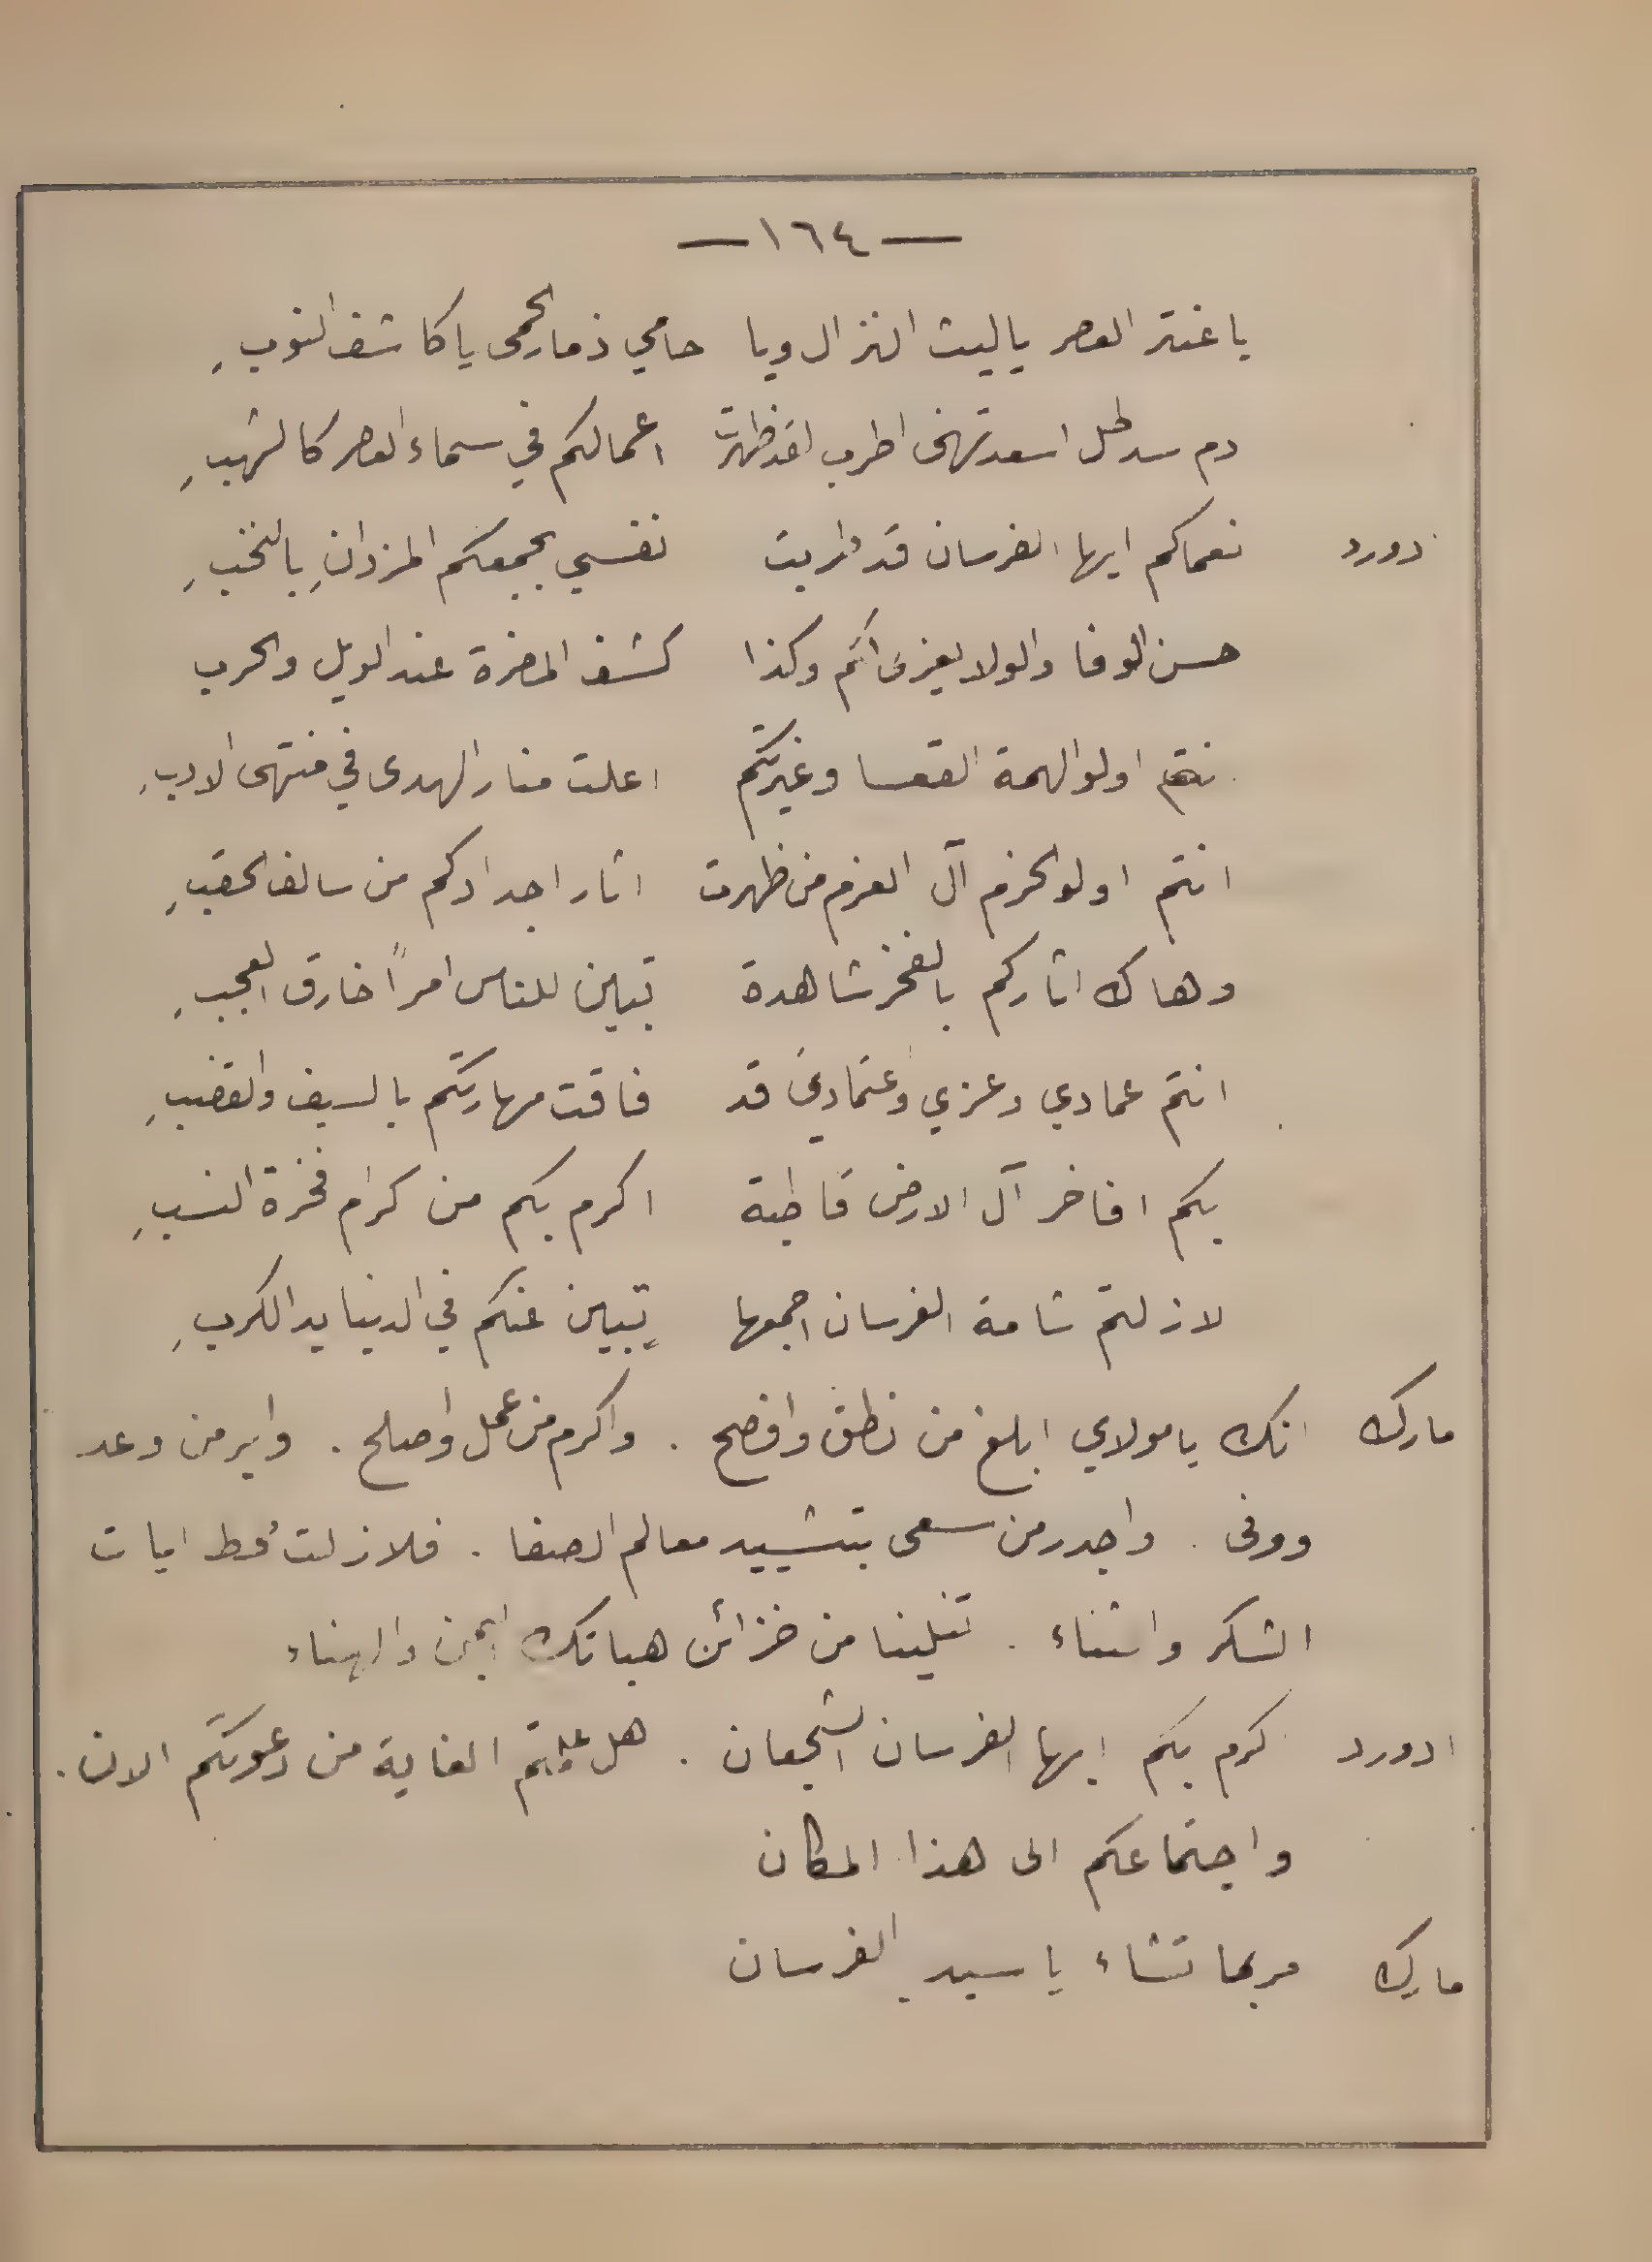 — ١٦٤ —
يا عنتر العصر يا ليث النزال ويا حامي ذمار الحمى يا كاشف النوبِ
دم سد طل اسعد تهنى اطرب لقد ظهرت اعمالكم في سماء العصر كالشهبِ
دورد نعماكم ايها الفرسان قد طربت نفسي بجمعكم المزدانِ بالنخبِ
حسن الوفا والولا يعزى لكم وكذا كشف المضرة عند الويل والحرب
نتم اولو الهمة القعسا وغيرتكم اعلت منار الهدى في منتهى الادبِ
انتم اولو الحزم آل العزم من ظهرت اثار اجدادكم من سالف الحقبِ
وهاك اثاركم بالفخر شاهدة تبين للناس امرًا خارق العجبِ
انتم عمادي وعزي واعتمادي قد فاقت مهارتكم بالسيف والقضبِ
بكم افاخر آل الارض قاطبة اكرم بكم من كرام فخرة النسبِ
لازلتم شامة الفرسان اجمعها تبين عنكم في الدينا يد الكربِ
مارك انك يا مولاي ابلغ من نطق وافصح . واكرم من عمل واصلح . وابر من وعد
ووفى . واجدر من سعى بتشييد معالم الصفا . فلازلت محط ايات
الشكر والثناء . تنيلينا من خزائن هباتك اليمن والهناء
ادورد كرم بكم ايها الفرسان الشجعان . هل علمتم الغاية من دعوتكم الان .
واجتماعكم الى هذا المكان
مارك مر بما تشاء يا سيد الفرسان